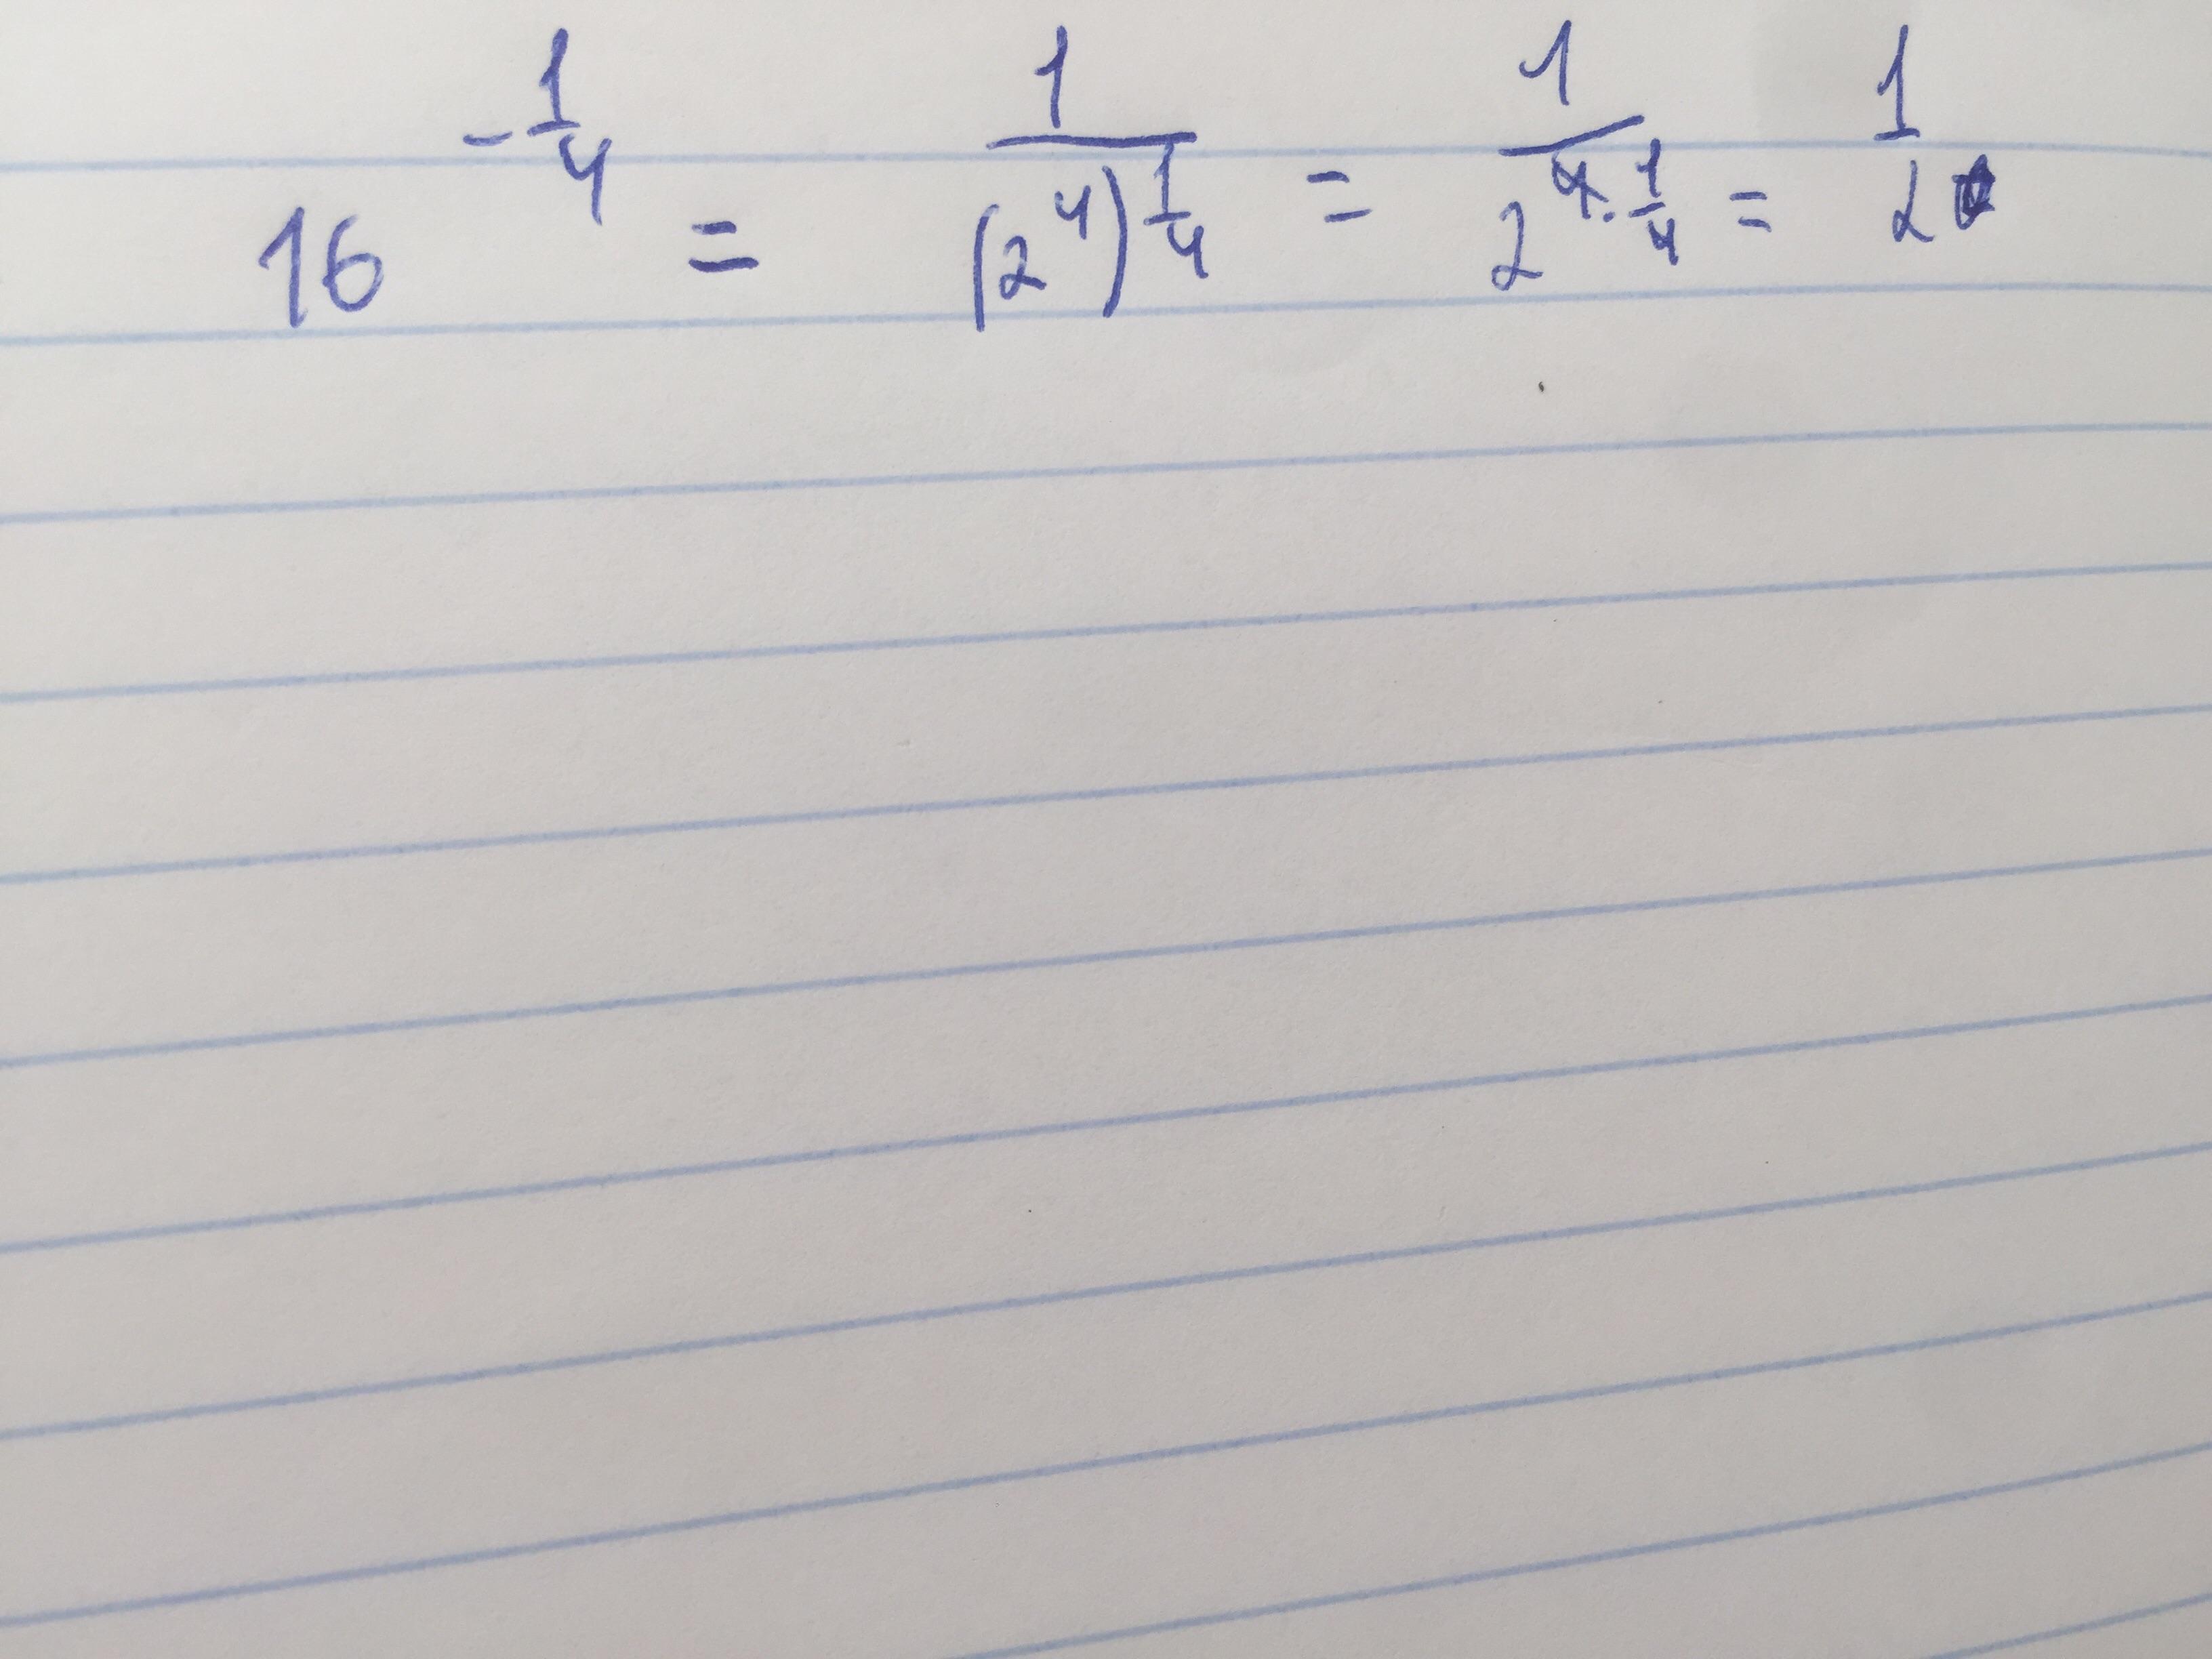 16^{-\frac{1}{4}} = \frac{1}{(2^4)^{\frac{1}{4}}} = \frac{1}{2^{4 \cdot \frac{1}{4}}} = \frac{1}{2}